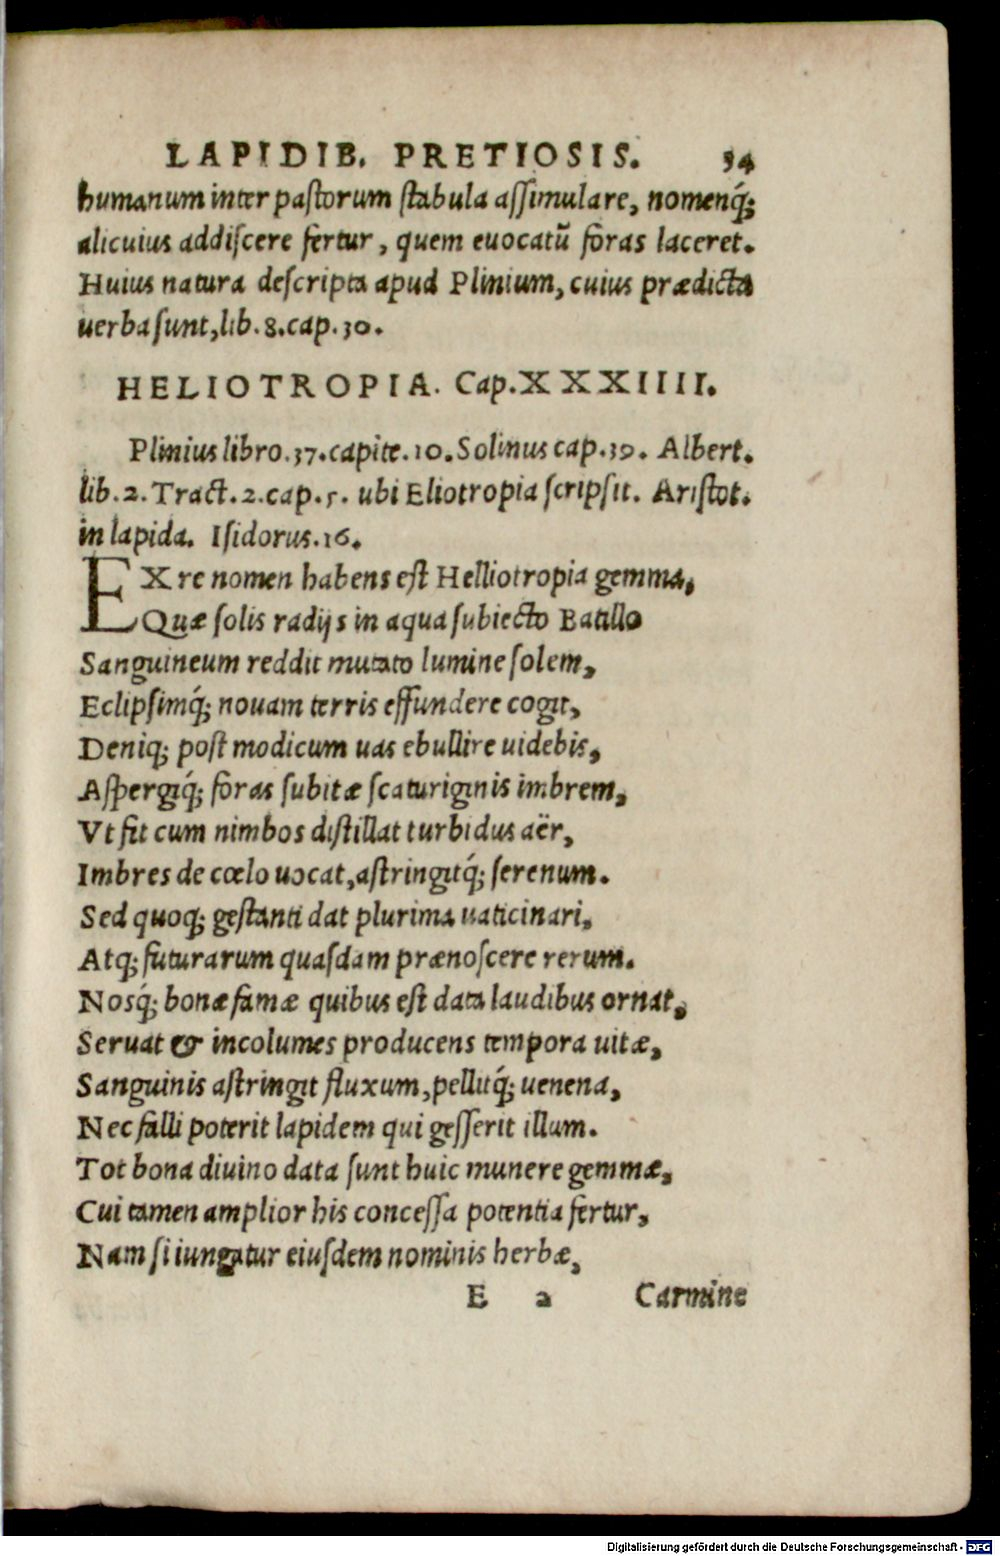 LAPIDIB. PRETIOSIS. 34
humanum inter pastorum stabula assimulare, nomenq́;
alicuius addiscere fertur, quem euocatū foras laceret.
Huius natura descripta apud Plinium, cuius prædicta
uerba sunt, lib. 8. cap. 30.
HELIOTROPIA. Cap. XXXIIII.
Plinius libro. 37. capite. 10. Solinus cap. 39. Albert.
lib. 2. Tract. 2. cap. 5. ubi Eliotropia scripsit. Aristot.
in lapida. Isidorus. 16.
EX re nomen habens est Helliotropia gemma,
Quæ solis radijs in aqua subiecto Batillo
Sanguineum reddit mutato lumine solem,
Eclipsimq́; nouam terris effundere cogit,
Deniq; post modicum uas ebullire uidebis,
Aspergiq́; foras subitæ scaturiginis imbrem,
Vt fit cum nimbos distillat turbidus aër,
Imbres de cœlo uocat, astringitq́; serenum.
Sed quoq; gestanti dat plurima uaticinari,
Atq; futurarum quasdam prænoscere rerum.
Nosq́; bonæ famæ quibus est data laudibus ornat,
Seruat & incolumes producens tempora uitæ,
Sanguinis astringit fluxum, pellitq́; uenena,
Nec falli poterit lapidem qui gesserit illum.
Tot bona diuino data sunt huic munere gemmæ,
Cui tamen amplior his concessa potentia fertur,
Nam si iungatur eiusdem nominis herbæ,
E 2 Carmine
Digitalisierung gefördert durch die Deutsche Forschungsgemeinschaft - DFG